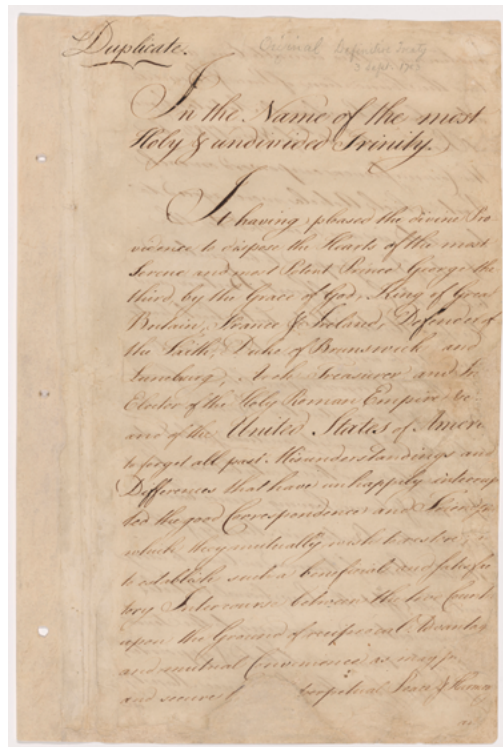 Duplicate.
Original Definitive Treaty
3 Sept. 1783
In the Name of the most
Holy & undivided Trinity.
It having pleased the divine Pro
vidence to dispose the Hearts of the most
Serene and most Potent Prince George the
third, by the Grace of God, King of Great
Britain, France & Ireland, Defender of
the Faith, Duke of Brunswick and
Luneburg, Arch Treasurer and
Elector of the Holy Roman Empire &c
and of the United States of Ameri
to forget all past Misunderstandings and
Differences that have unhappily interrup
ted the good Correspondence and Friendship
which they mutually wish to restore;
to establish such a beneficial and satisfac
tory Intercourse between the two Count
upon the Ground of reciprocal Advantag
and mutual Convenience as may
and secure perpetual Peace & Harmony